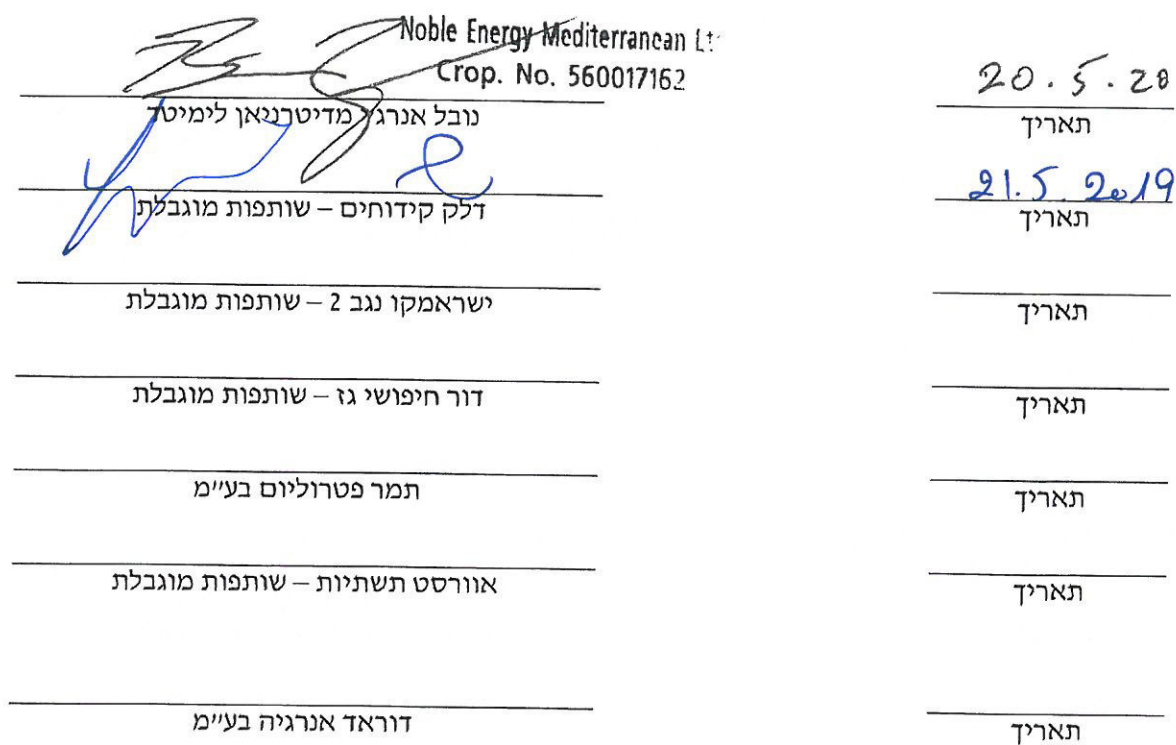 Noble Energy Mediterranean Lt
Crop. No. 560017162
20.5.20
נובל אנרג'י מדיטרניאן לימיטד
תאריך
21.5.2019
דלק קידוחים – שותפות מוגבלת
תאריך
ישראמקו נגב 2 – שותפות מוגבלת
תאריך
דור חיפושי גז – שותפות מוגבלת
תאריך
תמר פטרוליום בע״מ
תאריך
אוורסט תשתיות – שותפות מוגבלת
תאריך
דוראד אנרגיה בע״מ
תאריך